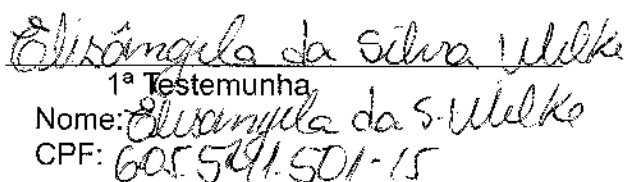 Elisângela da Silva Wilke
1ª Testemunha
Nome: Elisangela da S. Wilke
CPF: 605.541.501-15